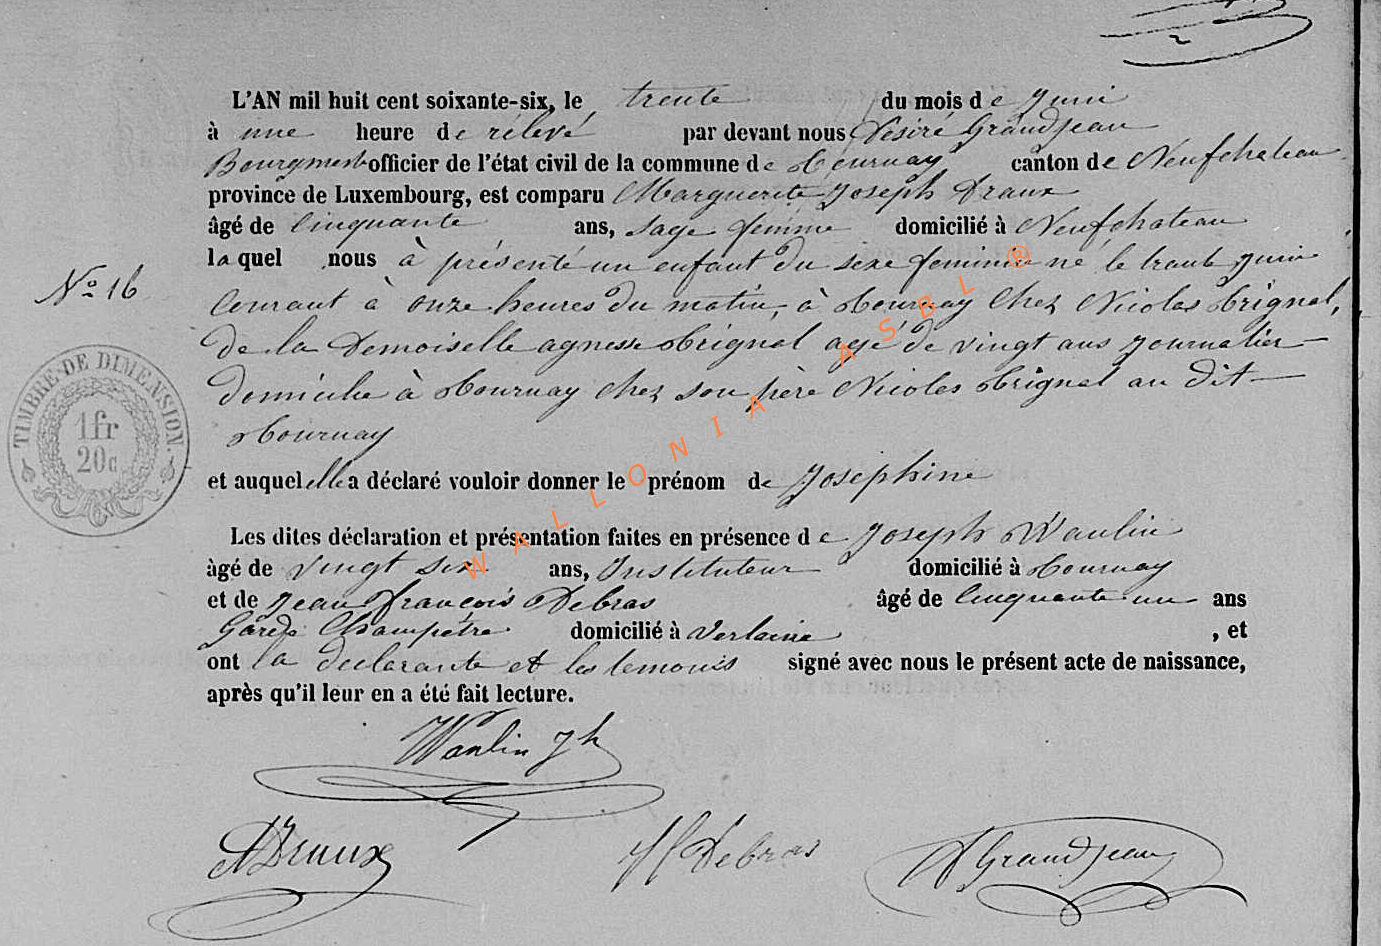 L'AN mil huit cent soixante-six, le trente du mois de Juin
à une heure de rélevé par devant nous Désiré Grandjean
Bourgmest officier de l'état civil de la commune de Tournay canton de Neufchateau
province de Luxembourg, est comparu Marguerite Joseph Draux
âgé de Cinquante ans, sage femme domicilié à Neufchateau
laquel nous à présenté un enfant du sexe feminin né le trente Juin
Courant à onze heures du matin, à Tournay Chez Nicolas Trignol,
de la Demoiselle agnesse Trignol agé de vingt ans Journalier
domicilie à Tournay Chez son père Nicolas Trignol au dit
Tournay
N° 16
TIMBRE DE DIMENSION.
1fr
20c
et auquel elle a déclaré vouloir donner le prénom de Joséphine
Les dites déclaration et présentation faites en présence de Joseph Wanlin
âgé de vingt six ans, Instituteur domicilié à Tournay
et de Jean françois Debras âgé de Cinquante un ans
Garde Champêtre domicilié à Verlaine , et
ont la déclarante et les temoins signé avec nous le présent acte de naissance,
après qu'il leur en a été fait lecture.
Wanlin Jh
Draux
Debras
D Grandjean
WALLONIA ASBL ®